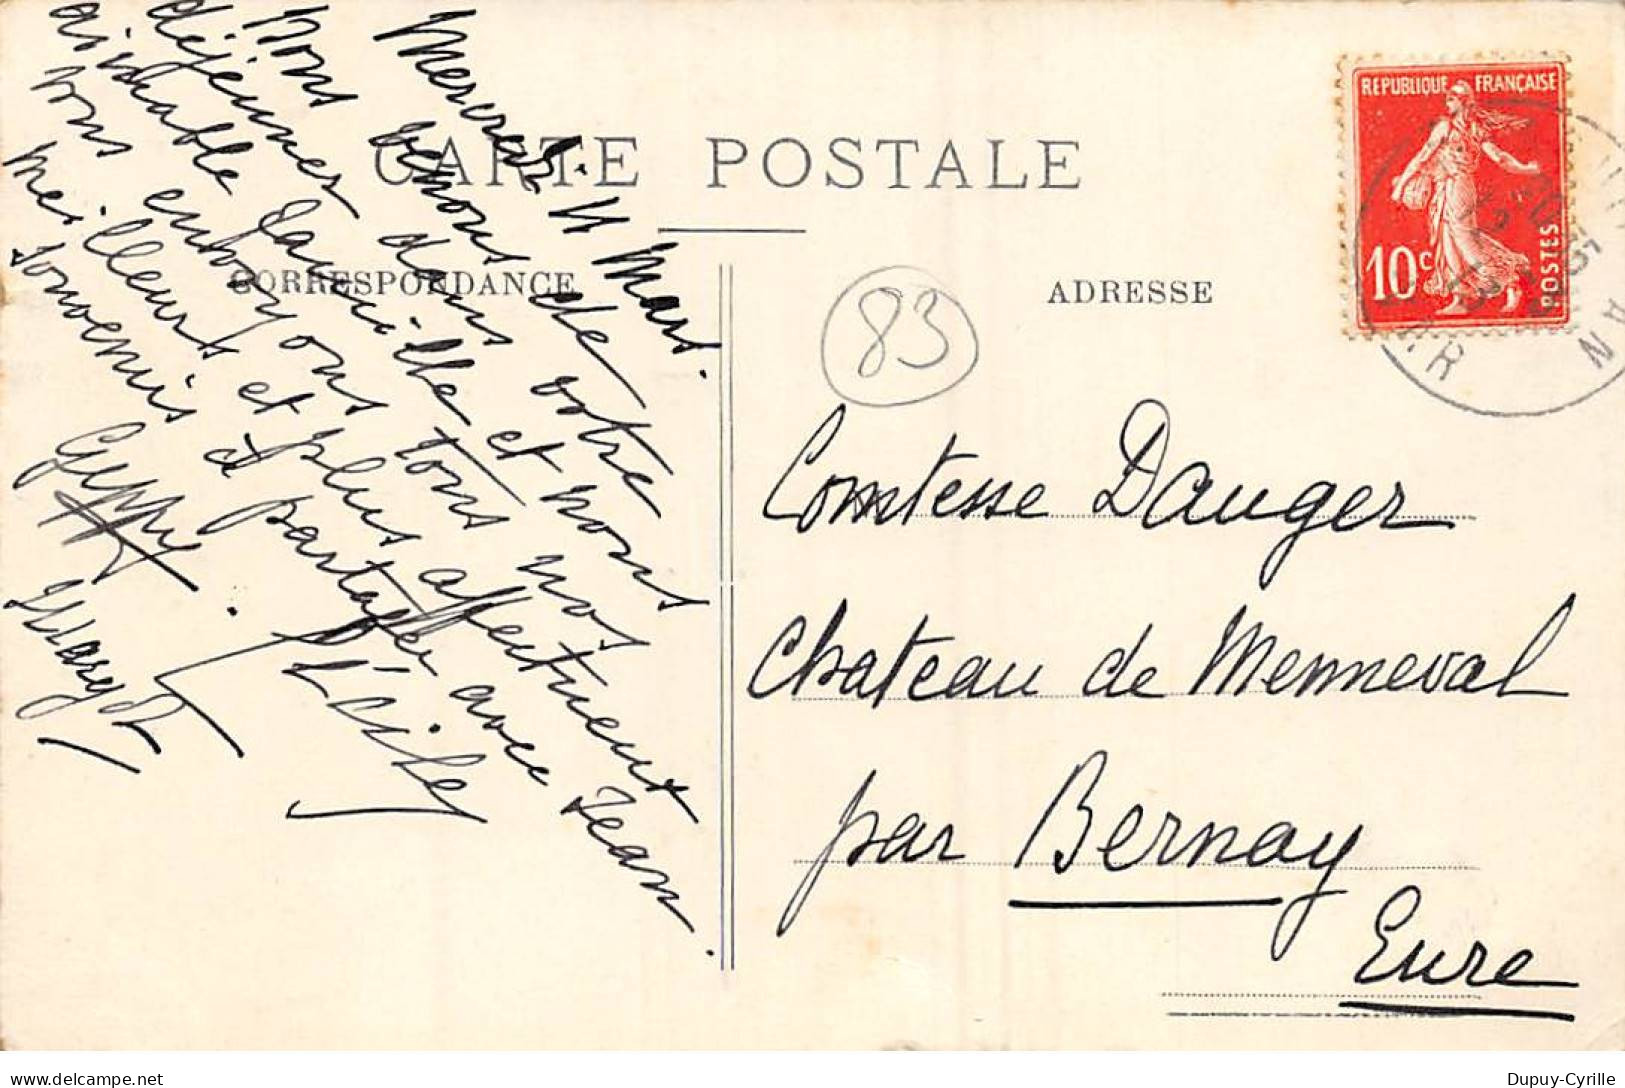 CARTE POSTALE
CORRESPONDANCE
ADRESSE
REPUBLIQUE FRANÇAISE
10c
POSTES
83
Mercredi 11 Mars.
Nous venons de votre
déjeuner dans et nous
aimable famille
vous envoyons tous nos
meilleurs et plus affectueux
souvenirs et partagés avec Jean.
Comtesse Dauger
Chateau de Menneval
par Bernay
Eure
delcampe.net
Dupuy-Cyrille